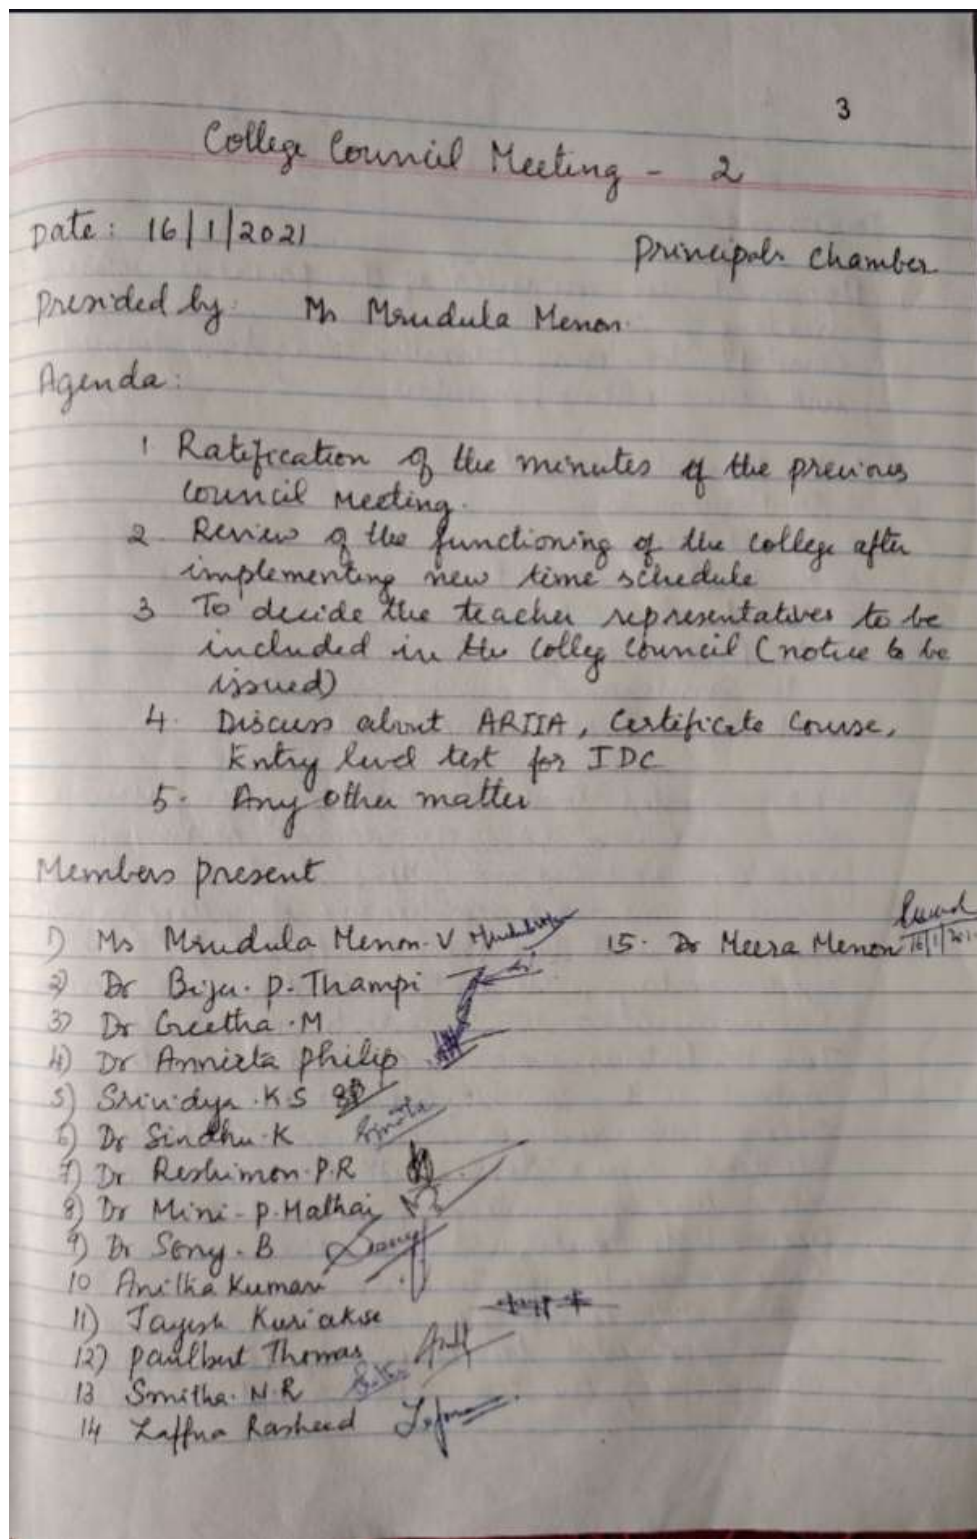 3
College Council Meeting - 2
Date: 16/1/2021
Principals Chamber
Presided by: Ms Mrudula Menon.
Agenda:
1 Ratification of the minutes of the previous
council meeting.
2 Review of the functioning of the college after
implementing new time schedule
3 To decide the teacher representatives to be
included in the Colleg Council (notice to be
issued)
4. Discuss about ARIIA, Certificate Course,
Entry level test for IDC
5. Any other matter
Members present
1) Ms Mrudula Menon. V
15. Dr Meera Menon
16/1/2021
2) Dr Biju. P. Thampi
3) Dr Geetha. M
4) Dr Annieta Philip
5) Srividya. K S
6) Dr Sindhu. K
7) Dr Reshimon. P.R
8) Dr Mini - P. Mathai
9) Dr Sony. B
10 Anitha Kumari
11) Jayesh Kuriakose
12) Paulbert Thomas
13 Smitha. N. R
14 Laffna Rasheed